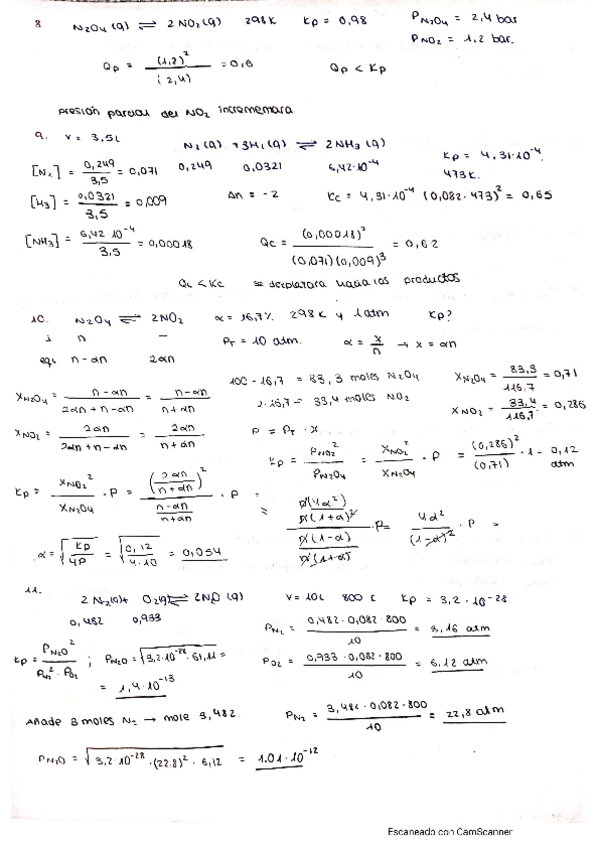 8 N₂O₄(g) ⇌ 2NO₂(g) 298K Kp = 0,98 P N₂O₄ = 2,4 bar
P NO₂ = 1,2 bar.
Qp = (1,2)² / (2,4) = 0,6 Qp < Kp
presión parcial del NO₂ incrementara
9. V = 3,5L N₂(g) + 3H₂(g) ⇌ 2NH₃(g) Kp = 4,31·10⁻⁴.
[N₂] = 0,249 / 3,5 = 0,071 0,249 0,0321 6,42·10⁻⁴ 473K.
[H₃] = 0,0321 / 3,5 = 0,009 Δn = -2 Kc = 4,31·10⁻⁴ (0,082·473)² = 0,65
[NH₃] = 6,42·10⁻⁴ / 3,5 = 0,00018 Qc = (0,00018)² / (0,071)(0,009)³ = 0,62
Qc < Kc se desplazara hacia los productos
10. N₂O₄ ⇌ 2NO₂ α = 16,7% 298K y 1atm Kp?
i n — P_T = 10 atm. α = x/n → x = αn
eq: n-αn 2αn
100 - 16,7 = 83,3 moles N₂O₄ X N₂O₄ = 83,3 / 116,7 = 0,71
X N₂O₄ = n-αn / 2αn+n-αn = n-αn / n+αn 2·16,7 = 33,4 moles NO₂ X NO₂ = 33,4 / 116,7 = 0,286
X NO₂ = 2αn / 2αn+n-αn = 2αn / n+αn P = P_T · X
Kp = P NO₂² / P N₂O₄ = X NO₂² / X N₂O₄ · P = (0,286)² / (0,71) · 1 = 0,12 atm
Kp = X NO₂² / X N₂O₄ · P = (2αn / n+αn)² / (n-αn / n+αn) · P = n²(4α²) / n²(1+α)² / n(1-α) / n(1+α) · P = 4α² / (1-α)² · P =
α = √(Kp / 4P) = √(0,12 / 4·10) = 0,054
11.
2N₂(g) + O₂(g) ⇌ 2N₂O(g) V = 10L 800 K Kp = 3,2·10⁻²⁸.
0,482 0,933 P N₂ = 0,482·0,082·800 / 10 = 3,16 atm
Kp = P N₂O² / P N₂² · P O₂ ; P N₂O = √(3,2·10⁻²⁸·61,11) = P O₂ = 0,933·0,082·800 / 10 = 6,12 atm
= 1,4·10⁻¹³
Añade 3 moles N₂ → mole 3,482. P N₂ = 3,482·0,082·800 / 10 = 22,8 atm
P N₂O = √(3,2·10⁻²⁸·(22,8)²·6,12) = 1.01·10⁻¹²
Escaneado con CamScanner